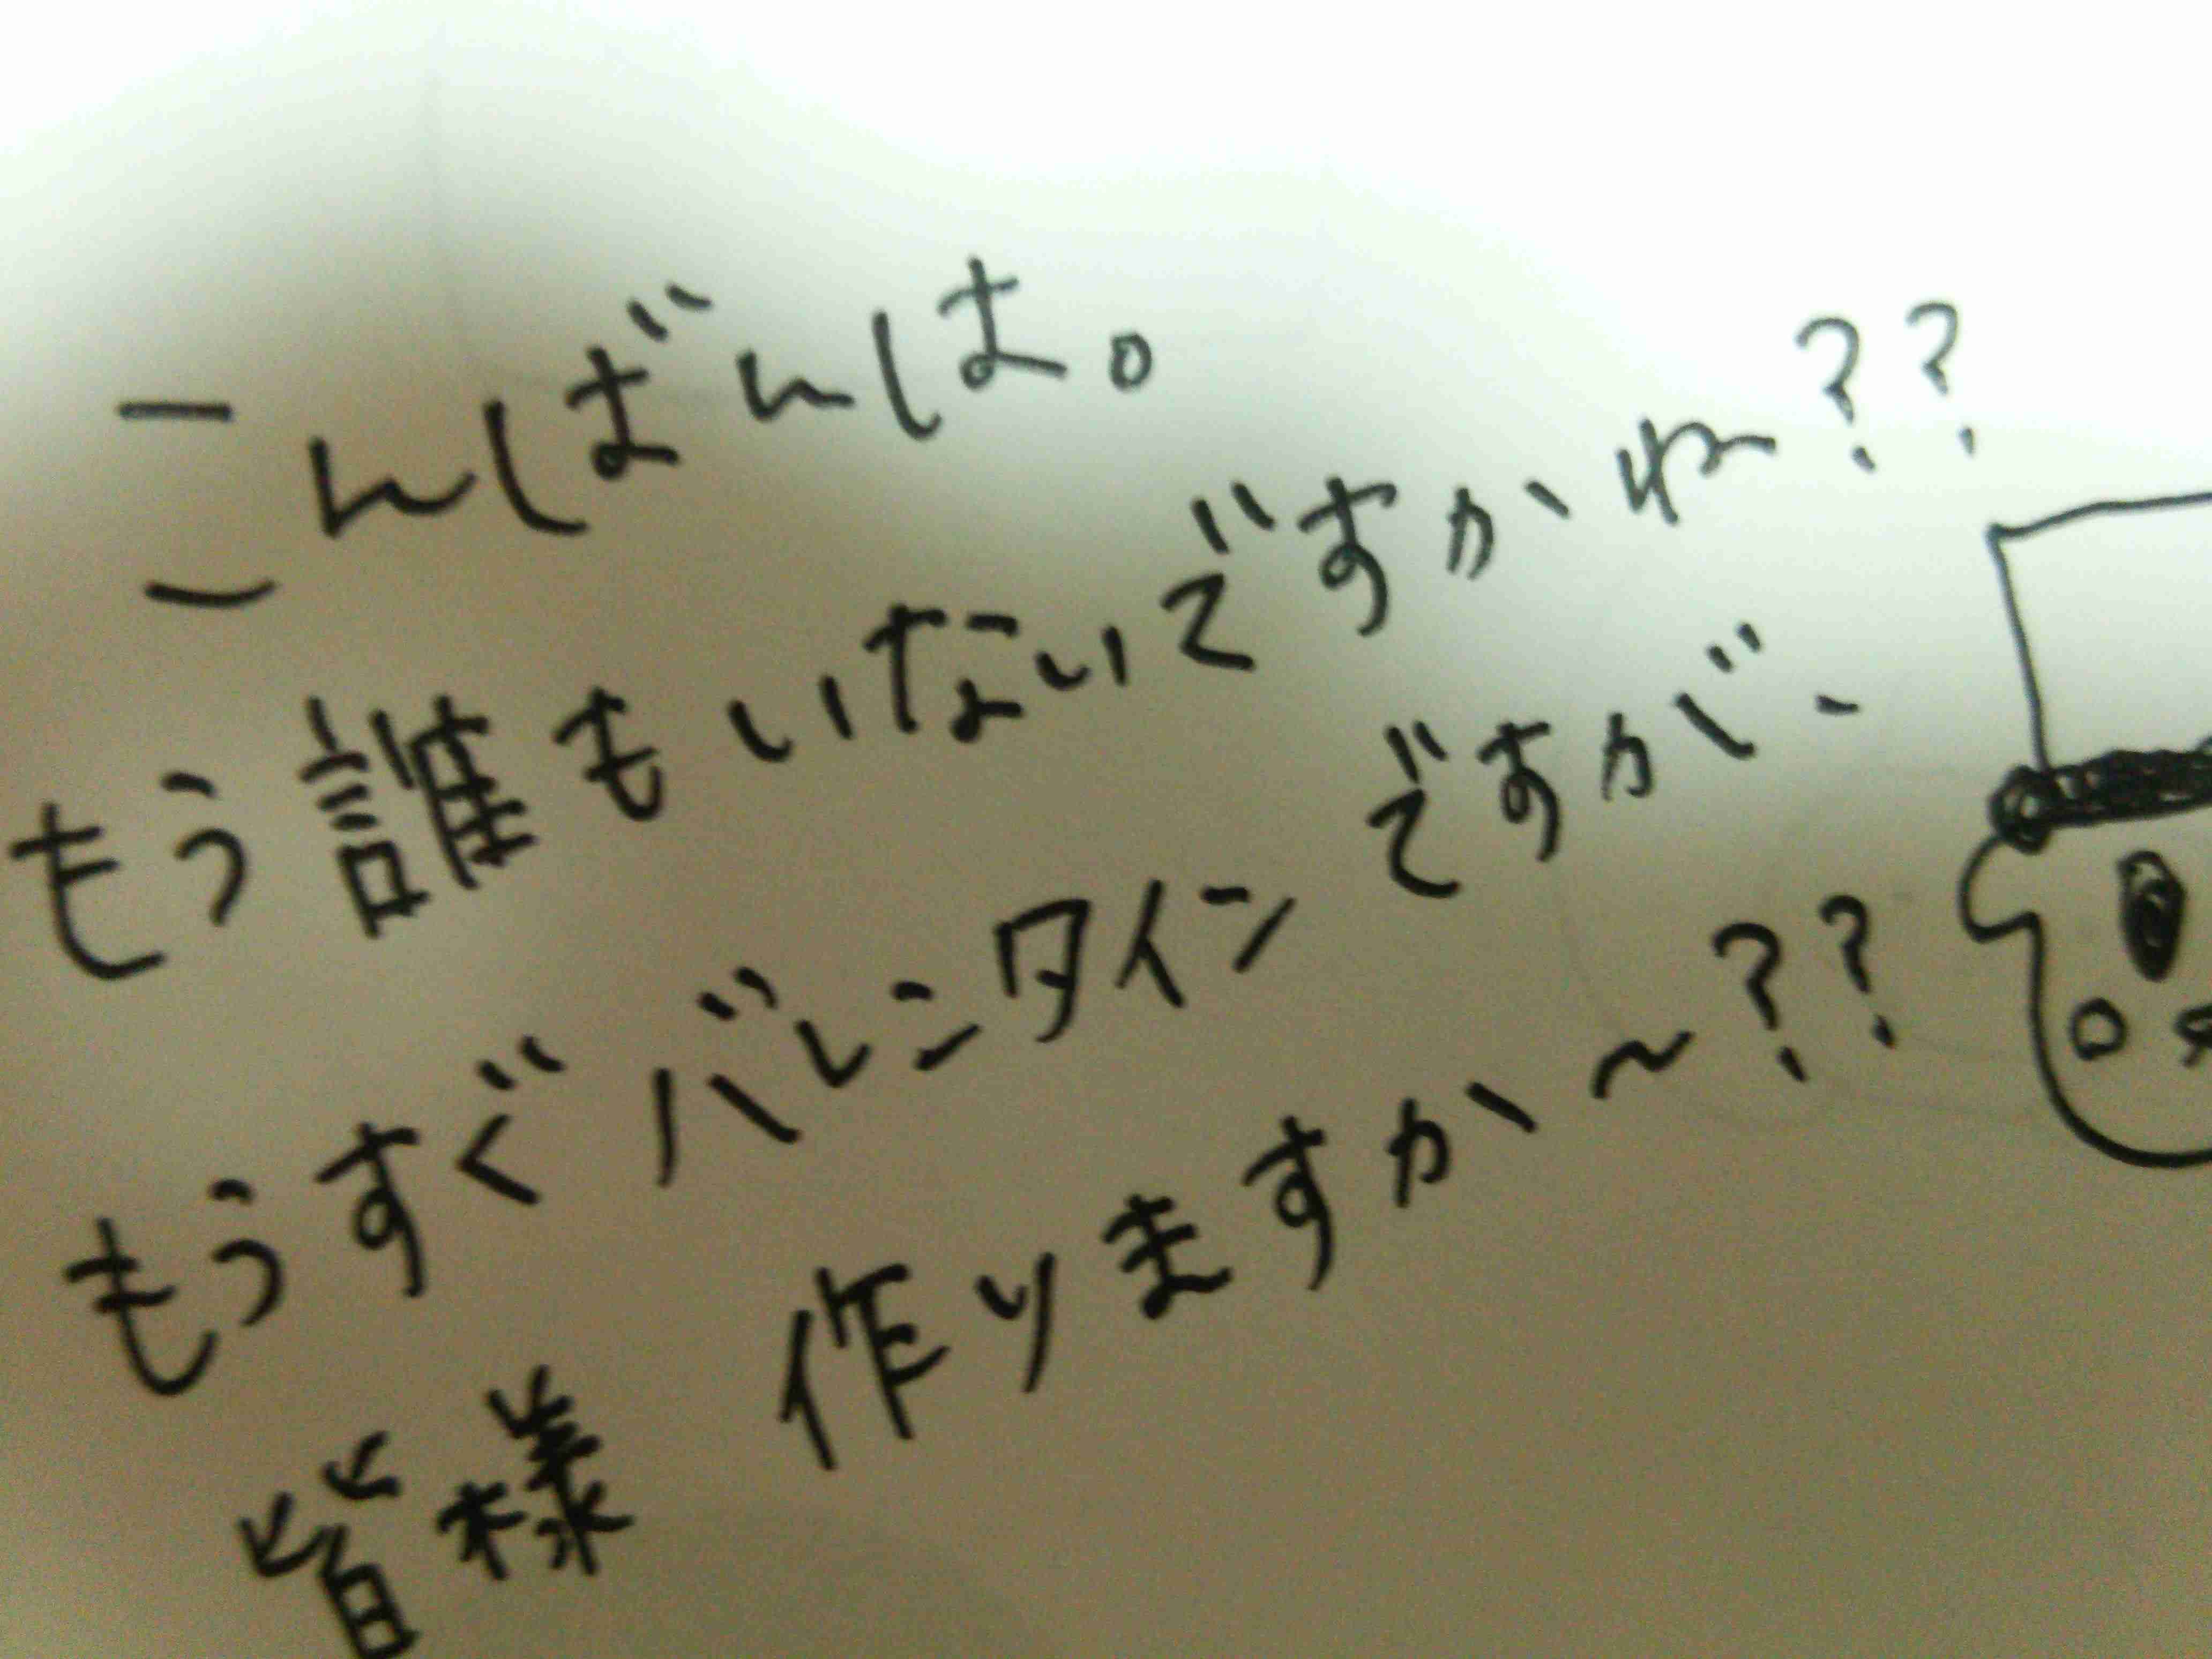 こんばんは。
もう誰もいないですかね??
もうすぐバレンタインですが、
皆様 作りますか〜??